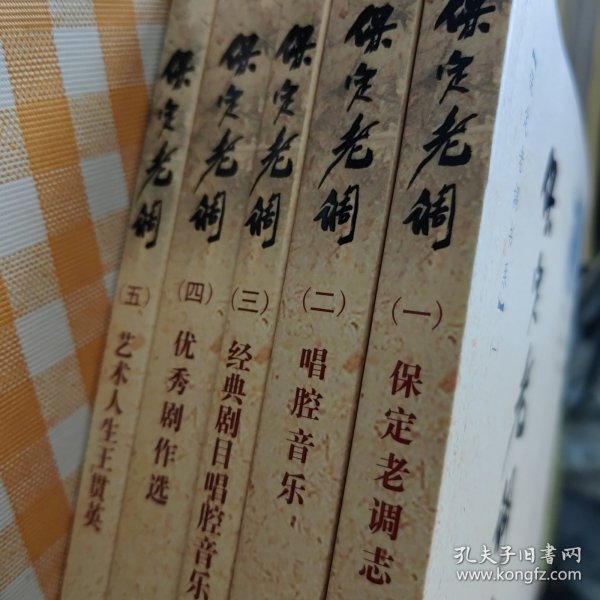 保定老调
（五）
艺术人生王贯英
保定老调
（四）
优秀剧作选
保定老调
（三）
经典剧目唱腔音乐
保定老调
（二）
唱腔音乐
保定老调
（一）
保定老调志
保定老调
孔夫子旧书网
www.kongfz.com